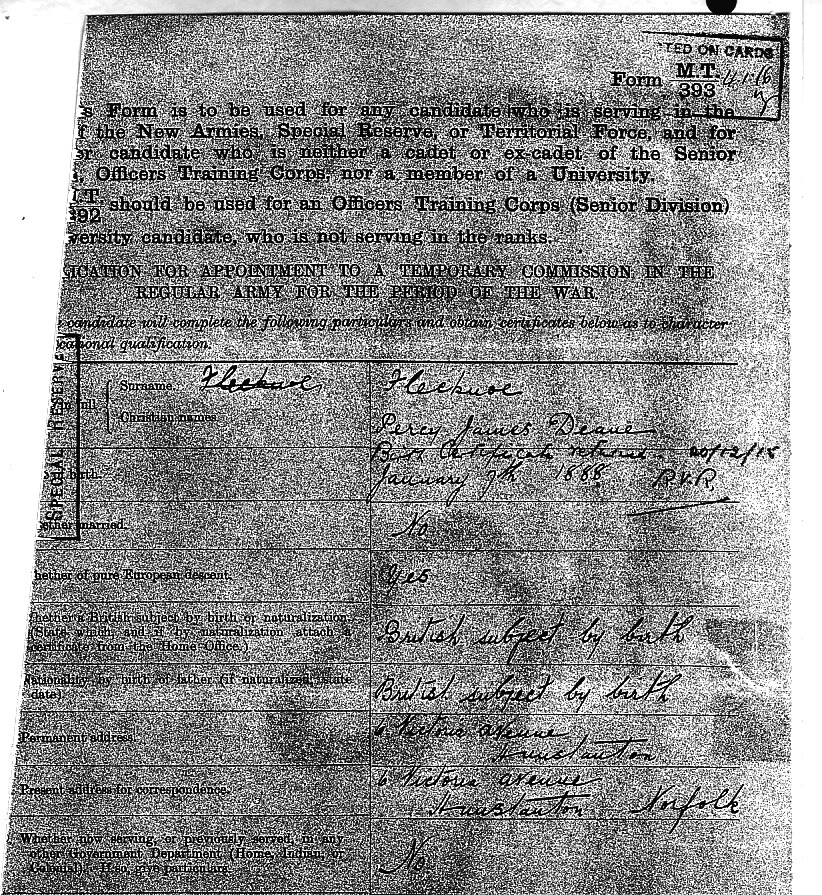 TED ON CARDS
Form M.T. 393
s Form is to be used for any candidate who is serving in the
f the New Armies, Special Reserve, or Territorial Force, and for
r candidate who is neither a cadet or ex-cadet of the Senior
Officers Training Corps, nor a member of a University.
.T. 392 should be used for an Officers Training Corps (Senior Division)
versity candidate, who is not serving in the ranks.
ICATION FOR APPOINTMENT TO A TEMPORARY COMMISSION IN THE
REGULAR ARMY FOR THE PERIOD OF THE WAR.
candidate will complete the following particulars and obtain certificates below as to character
cational qualification.
SPECIAL RESERVE
Surname. Flecknoe Flecknoe
ull
Christian names.
Percy James Deane
Birth Certificate returned. 20/12/15
birth. January 9th 1888 R.V.R.
ether married. No
hether of pure European descent. Yes
hether a British subject by birth or naturalization.
(State which, and if by naturalization attach a
certificate from the Home Office.)
British subject by birth
Nationality by birth of father (if naturalized, state
date).
British subject by birth
Permanent address. 6 Victoria avenue
Hunstanton
Present address for correspondence. 6 Victoria avenue
Hunstanton Norfolk
Whether now serving, or previously served, in any
other Government Department (Home, Indian, or
Colonial). If so, give particulars.
No